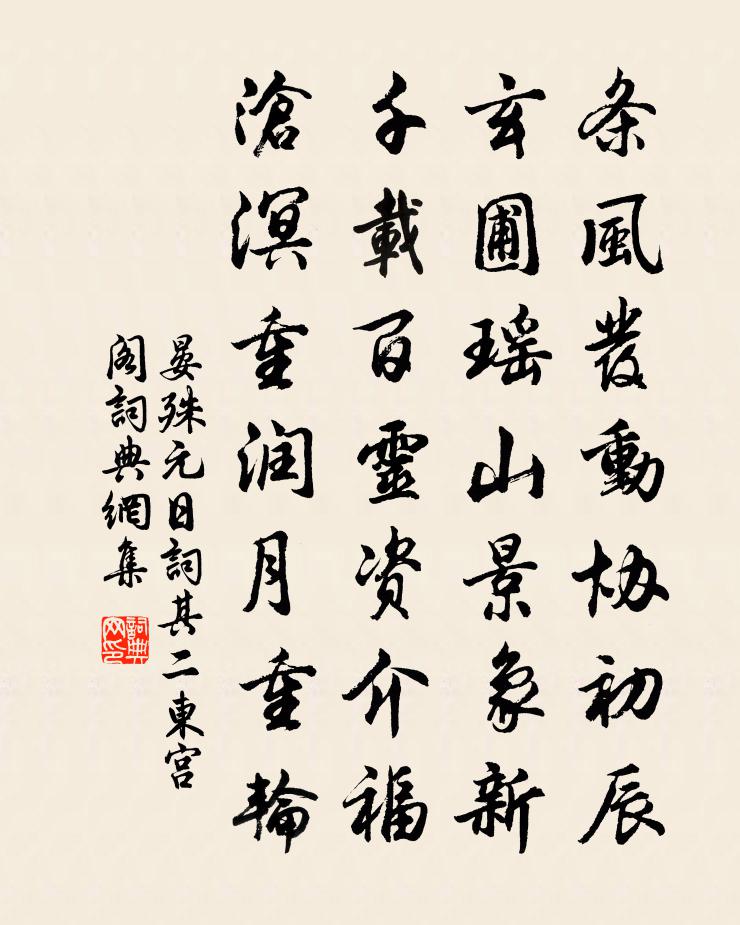 条風發動协初辰
玄圃瑶山景象新
千載百靈资介福
滄溟重润月重輪
晏殊元日詞其二東宫
阁詞典網集
詞典网印